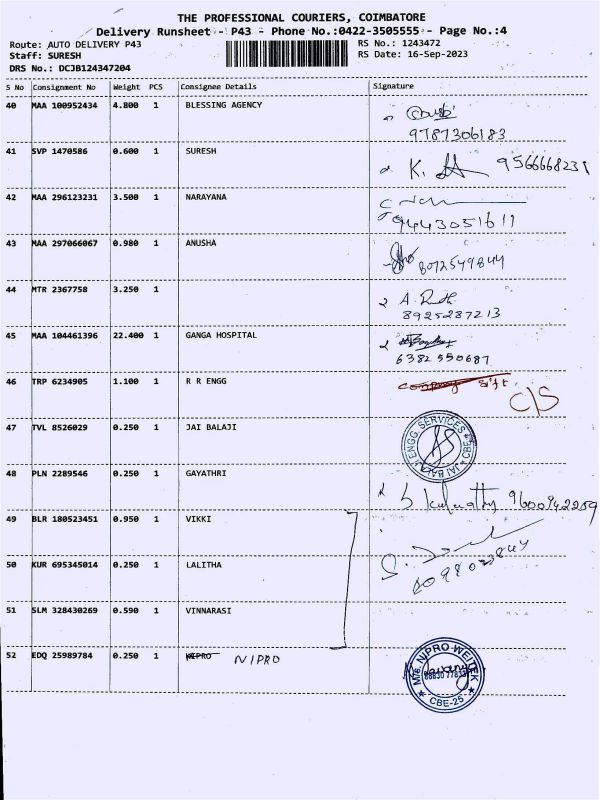 THE PROFESSIONAL COURIERS, COIMBATORE
Delivery Runsheet - P43 - Phone No.:0422-3505555 - Page No.:4
Route: AUTO DELIVERY P43 RS No.: 1243472
Staff: SURESH RS Date: 16-Sep-2023
DRS No.: DCJB124347204
S No Consignment No Weight PCS Consignee Details Signature
40 MAA 100952434 4.800 1 BLESSING AGENCY
9787306183
41 SVP 1470586 0.600 1 SURESH K. 9566668231
42 MAA 296123231 3.500 1 NARAYANA
9443051611
43 MAA 297066067 0.980 1 ANUSHA
8072549844
44 MTR 2367758 3.250 1 A.
8925287213
45 MAA 104461396 22.400 1 GANGA HOSPITAL
6382550687
46 TRP 6234905 1.100 1 R R ENGG company sift C/S
47 TVL 8526029 0.250 1 JAI BALAJI
JAI BALAJI ENGG SERVICES CBE
48 PLN 2289546 0.250 1 GAYATHRI
9600942259
49 BLR 180523451 0.950 1 VIKKI
50 KUR 695345014 0.250 1 LALITHA
51 SLM 328430269 0.590 1 VINNARASI
52 EDQ 25989784 0.250 1 NIPRO NIPRO
M/s. NIPRO WEITEK
CBE-25